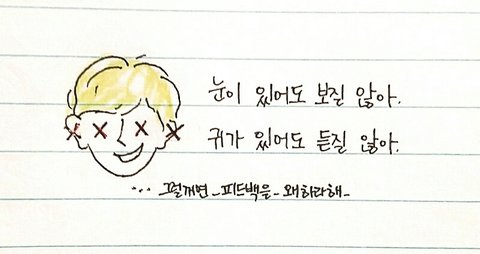 눈이 있어도 보질 않아.
귀가 있어도 듣질 않아.
... 그럴꺼면_피드백은_왜하라해_